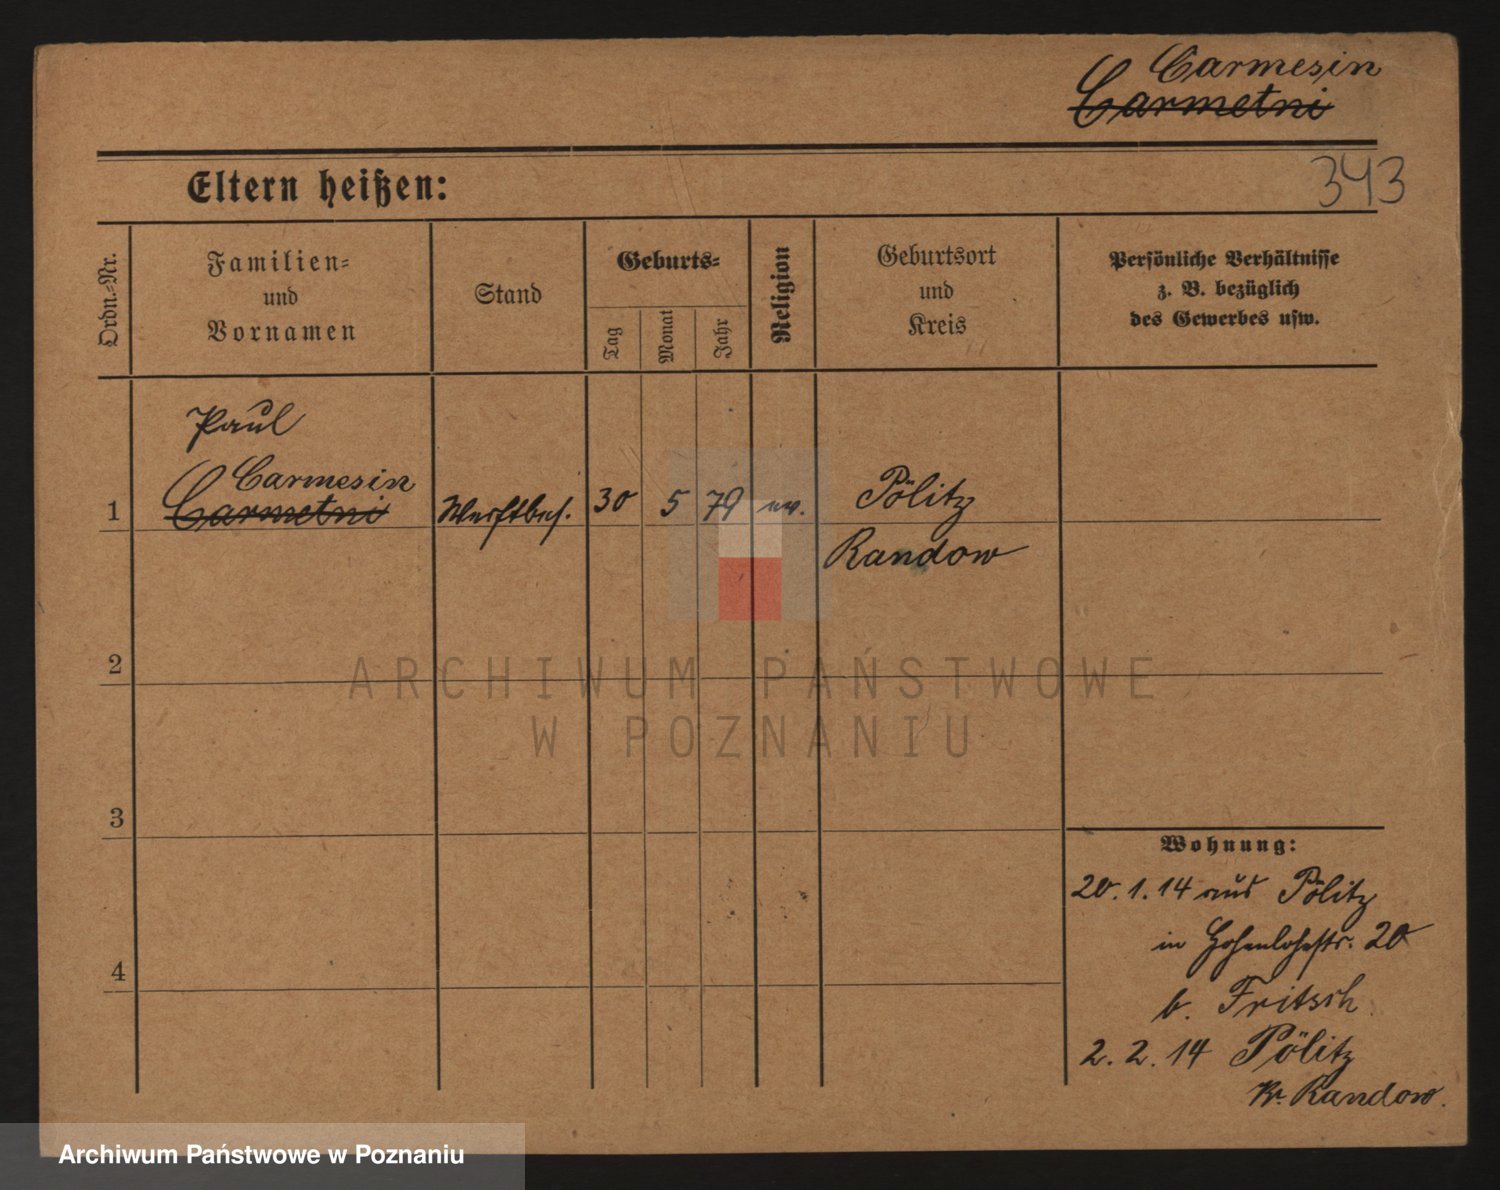 Carmesin
Carmetni
343
Eltern heißen:
Ordn.=Nr.
Familien=
und
Vornamen
Stand
Geburts=
Tag
Monat
Jahr
Religion
Geburtsort
und
Kreis
Persönliche Verhältnisse
z. B. bezüglich
des Gewerbes usw.
1
Paul
Carmesin
Carmetni
Werftbes.
30
5
79
ev.
Pölitz
Randow
2
3
4
Wohnung:
20.1.14 aus Pölitz
in Hohenlohestr. 20
b. Fritsch
2.2.14 Pölitz
Kr. Randow.
ARCHIWUM PAŃSTWOWE
W POZNANIU
Archiwum Państwowe w Poznaniu